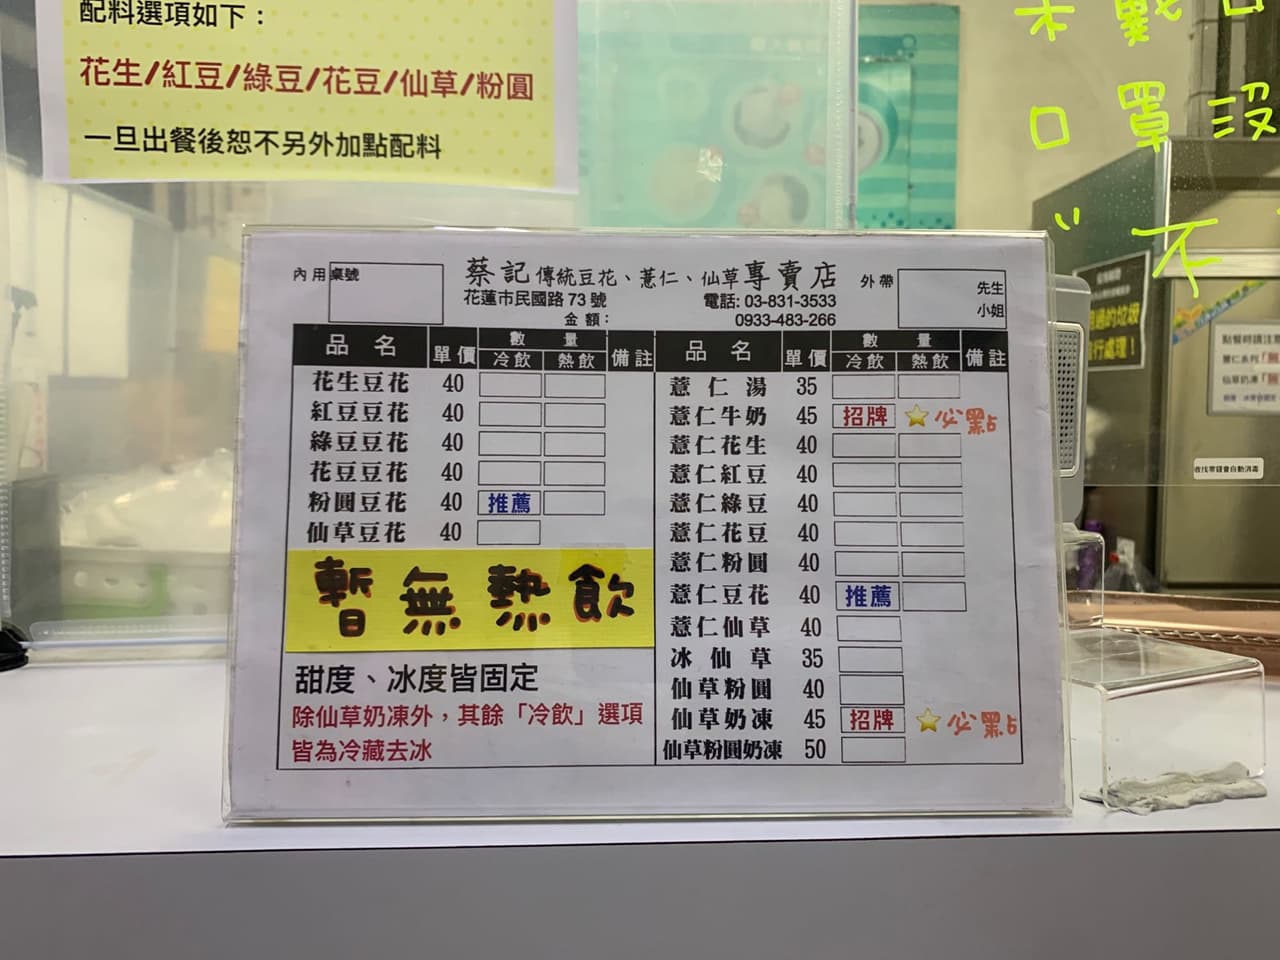 配料選項如下：
花生/紅豆/綠豆/花豆/仙草/粉圓
一旦出餐後恕不另外加點配料
未戴口
口罩沒
不
內用桌號
蔡記傳統豆花、薏仁、仙草專賣店
外帶
先生
小姐
花蓮市民國路 73 號
電話: 03-831-3533
金額：
0933-483-266
品名 單價 數量 備註 品名 單價 數量 備註
冷飲 熱飲 冷飲 熱飲
花生豆花 40
紅豆豆花 40
綠豆豆花 40
花豆豆花 40
粉圓豆花 40 推薦
仙草豆花 40
暫無熱飲
甜度、冰度皆固定
除仙草奶凍外，其餘「冷飲」選項
皆為冷藏去冰
薏仁湯 35
薏仁牛奶 45 招牌 必點
薏仁花生 40
薏仁紅豆 40
薏仁綠豆 40
薏仁花豆 40
薏仁粉圓 40
薏仁豆花 40 推薦
薏仁仙草 40
冰仙草 35
仙草粉圓 40
仙草奶凍 45 招牌 必點
仙草粉圓奶凍 50
點餐時請注意
收找零錢會自動消毒